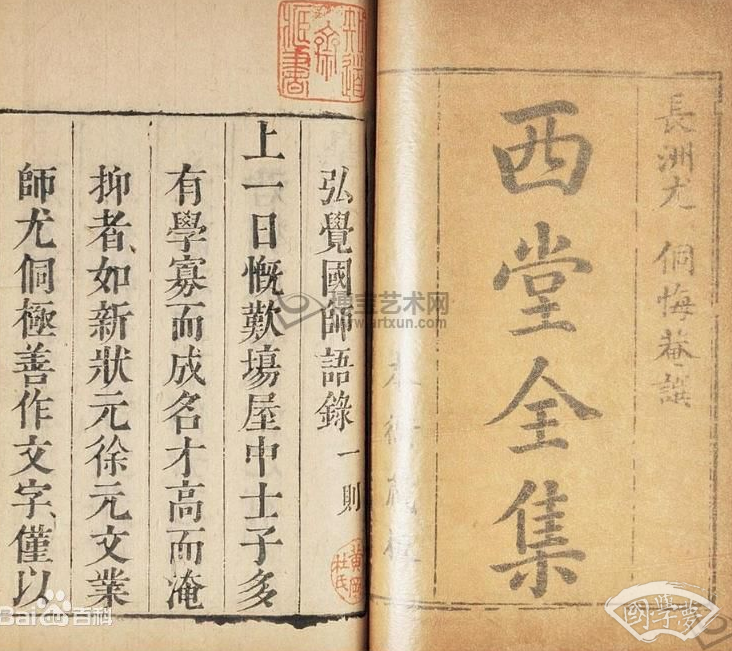 長洲尤侗悔菴譔
西堂全集
本衙藏板
弘覺國師語錄一則
上一日慨歎場屋中士子多
有學寡而成名才高而淹
抑者如新狀元徐元文業
師尤侗極善作文字僅以
博宝艺术网
www.artxun.com
Bai百科
國學夢
黄岡
杜氏